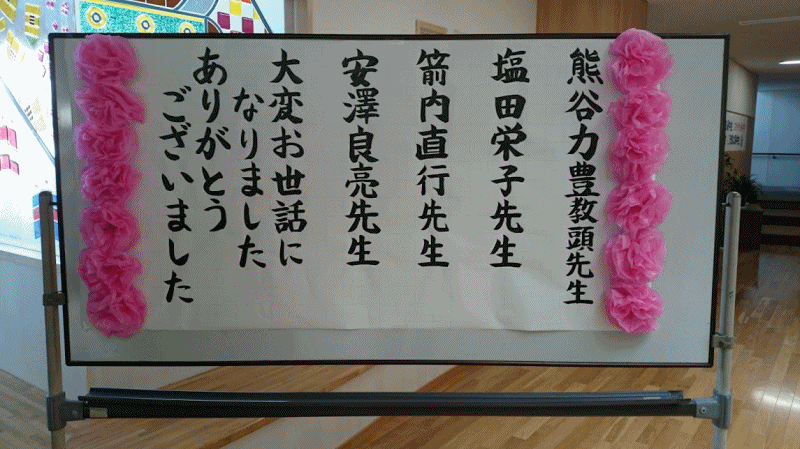 熊谷力豊教頭先生
塩田栄子先生
箭内直行先生
安澤良亮先生
大変お世話に
なりました
ありがとう
ございました